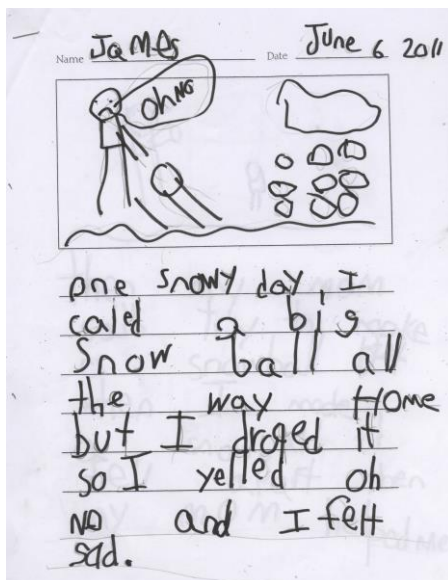 Name JaMes Date June 6 2011
Oh No
one snowy day I
caled a big
Snow ball all
the way Home
but I droged it
so I yelled oh
NO and I felt
sad.